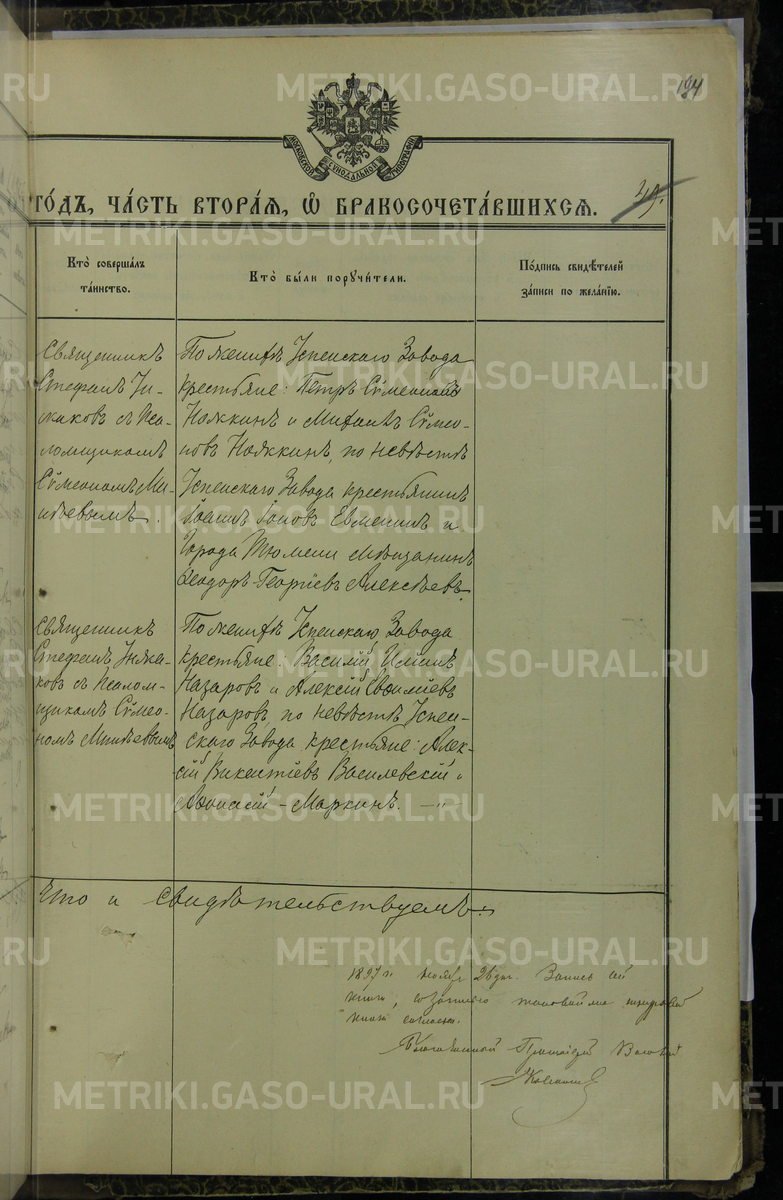 194
МОСКОВСКОЙ СѴНОДАЛЬНОЙ ТИПОГРАФІИ
го́дъ, ча́сть втора́я, ѡ҆ бракосочета́вшихся.
49.
Кто̀ соверша́лъ та́инство.
Кто̀ бы́ли поручи́тели.
По́дпись свидѣ́телей за́писи по жела́нїю.
Священникъ
Стефанъ
ковъ съ Псa-
ломщикомъ
Сѵмеономъ Ми-
нѣевымъ.
По женихѣ Успенскаго Завода
крестьяне: Петръ Сѵмеоновъ
Няккинъ и Михаилъ Сѵмео-
новъ Няккинъ, по невѣстѣ
Успенскаго Завода крестьянинъ
Іоаннъ Іоновъ и
Города Тюмени мѣщанинъ
Ѳеодоръ Георгіевъ Алексѣевъ.
Священникъ
Стефанъ
ковъ съ Псалом-
щикомъ Сѵмео-
номъ Минѣевымъ
По женихѣ Успенскаго Завода
крестьяне: Василій
Назаровъ и Алексій
Назаровъ, по невѣстѣ Успен-
скаго Завода крестьяне: Алек-
сій Викентіевъ Василевскій и
Аѳонасій Маркинъ.
Что и свидѣтельствуемъ:
1897 г. ноября 26 дня. Запись сей
книги, со
книги согласна.
Благочинный